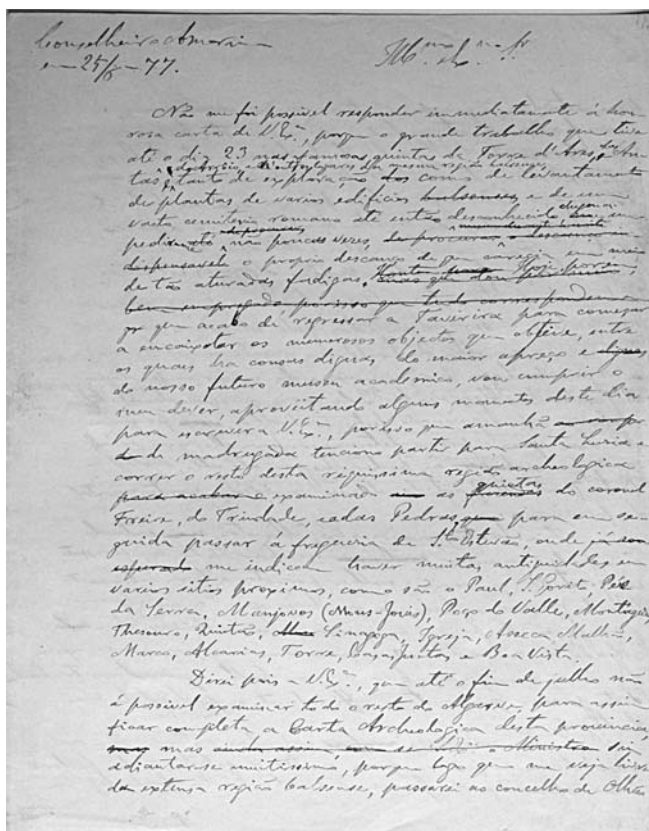 Conselheiro Amorim
em 25/6-77.
Ill.mo Ex.mo Sr.
Não me foi possivel responder immediatamente á hon-
rosa carta de V. Ex.ª, porque o grande trabalho que tive
até o dia 23 nas famosas quintas da Torre d'Ares, das An-
tas, e d'outros logares da mesma região balsense,
tanto de exploração como de levantamento
de plantas de varios edificios balsenses e de um
vasto cemiterio romano até então desconhecido,
não poucas vezes, de procurar o descanço in
dispensavel o proprio descanço de que carecia em meio
de tão aturadas fadigas. Hoje porém,
bem empregado porisso que tudo correspondeu
que acabo de regressar a Taveira para começar
a encaixotar os numerosos objectos que obtive, entre
os quaes ha cousas dignas do maior apreço e dignas
do nosso futuro museu academico, vou cumprir o
meu dever, aproveitando alguns momentos deste dia
para escrever a V. Ex.ª, porisso que amanhã
de madrugada tenciono partir para Santa Luzia e
correr o resto desta riquissima região archeologica
para acabar e examinado as quintas do coronel
Freire, do Trindade, e das Pedras, para em se-
guida passar á freguezia de S.to Estevão, onde já sou
esperado me indicam haver muitas antiguidades em
varios sitios proximos, como são o Paul, Pés
da Serra, Manjovos (Mons-Jovis), Poço do Valle, Montagui,
Thesouro, Quintão, Sinagoga, Igreja, Asseca Malhão,
Marco, Alcarias, Torre, Casas juntas e Boa Vista.
Direi pois a V. Ex.ª, que até o fim de julho não
é possivel examinar todo o resto do Algarve, para assim
ficar completa a Carta Archeologica desta provincia,
mas mas ainda assim com se o Ministro
adiantar-se muitissimo, porque logo que me veja livre
da extensa região balsense, passarei ao concelho de Olhão